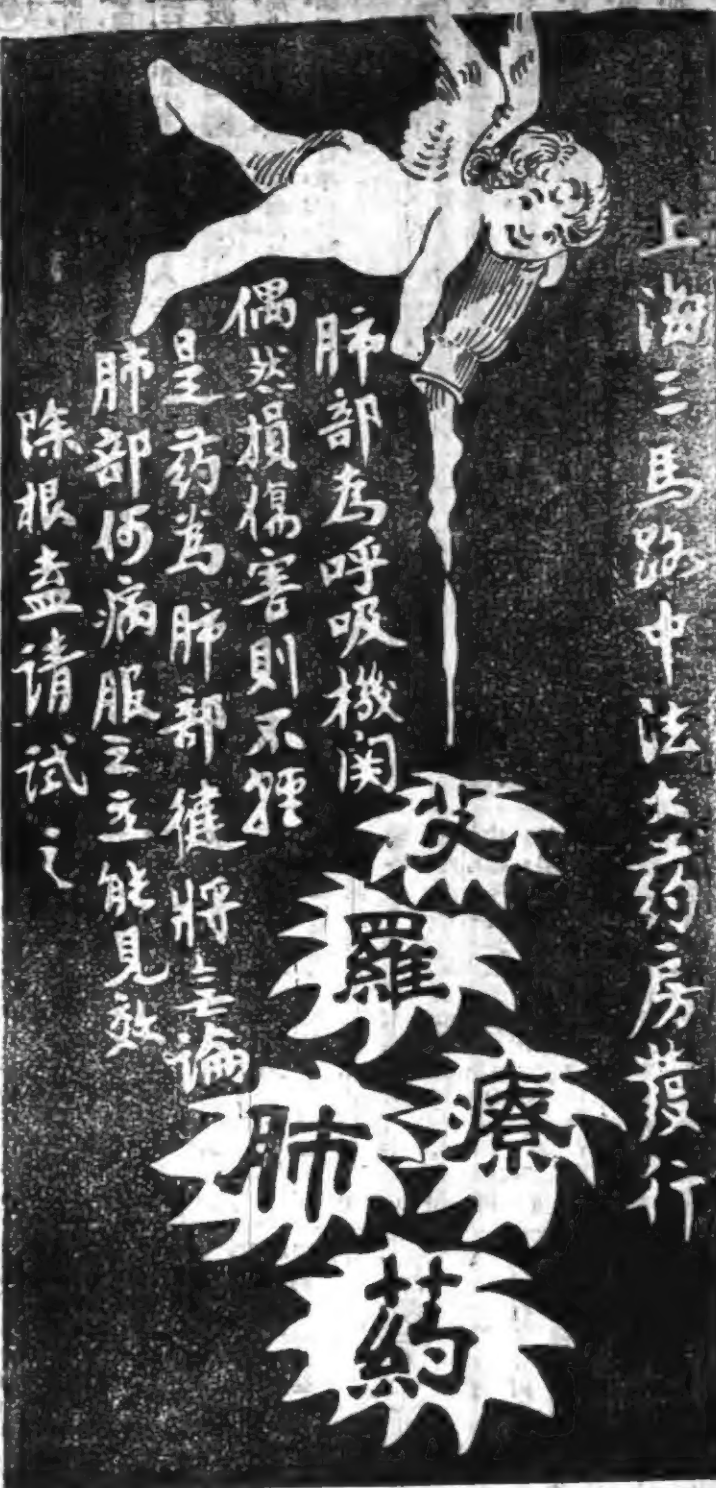 上海三馬路中法大药房發行
艾羅療肺藥
肺部為呼吸機関
偶然損傷害則不輕
是药為肺部健將無論
肺部何病服之立能見效
除根盍请试之